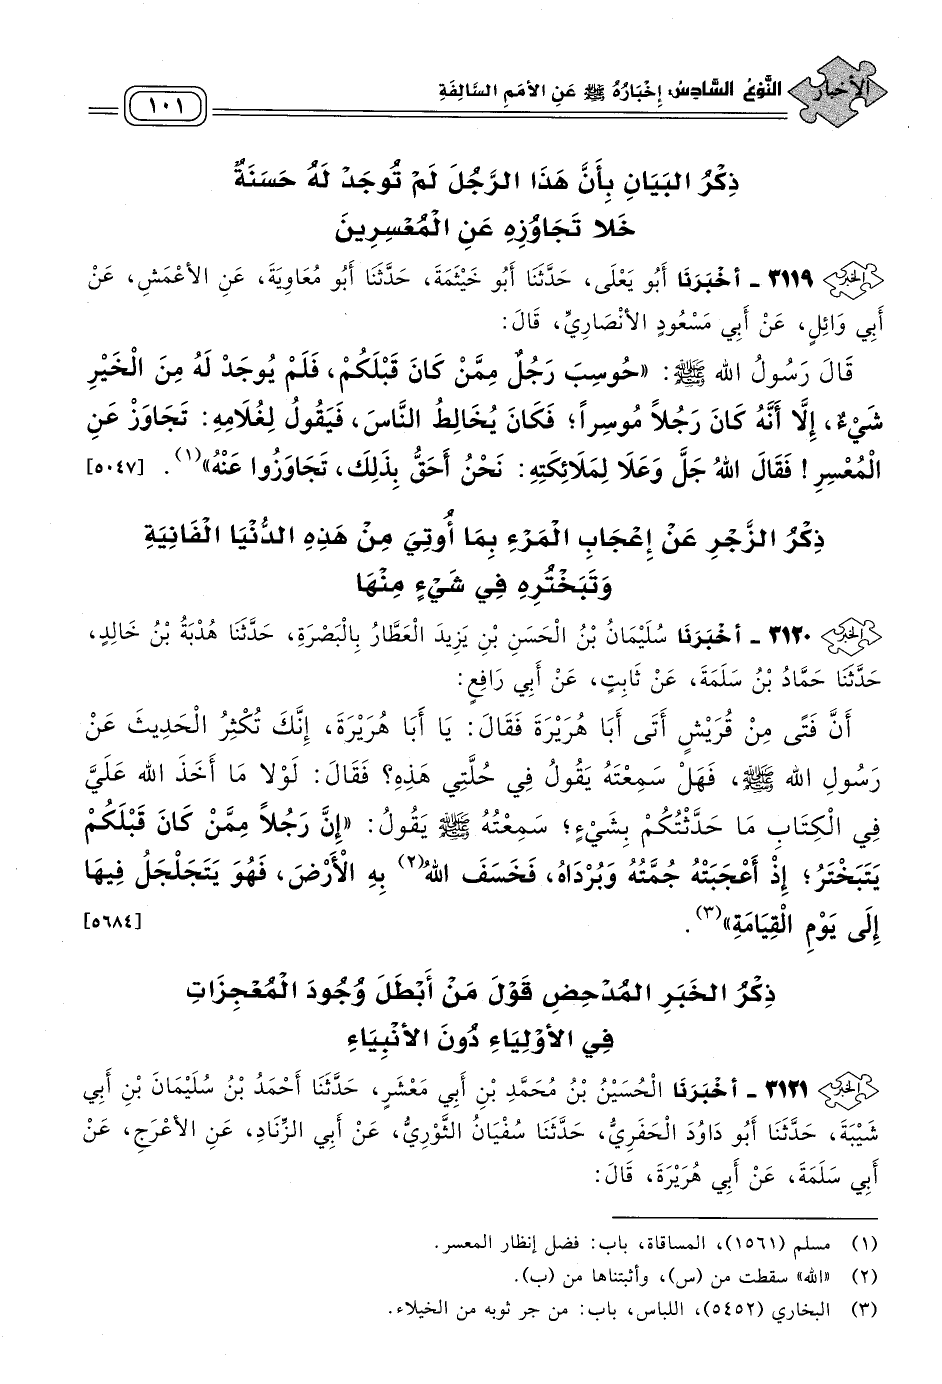 الأخبار
النَّوْعُ السَّادِسُ: إِخْبَارُهُ ﷺ عَنِ الأُمَمِ السَّالِفَةِ
١٠١
ذِكْرُ البَيَانِ بِأَنَّ هَذَا الرَّجُلَ لَمْ تُوجَدْ لَهُ حَسَنَةٌ
خَلا تَجَاوُزِهِ عَنِ الْمُعْسِرِينَ
٣١١٩ - أَخْبَرَنَا أَبُو يَعْلَى، حَدَّثَنَا أَبُو خَيْثَمَةَ، حَدَّثَنَا أَبُو مُعَاوِيَةَ، عَنِ الأَعْمَشِ، عَنْ
أَبِي وَائِلٍ، عَنْ أَبِي مَسْعُودٍ الأَنْصَارِيِّ، قَالَ:
قَالَ رَسُولُ الله ﷺ: «حُوسِبَ رَجُلٌ مِمَّنْ كَانَ قَبْلَكُمْ، فَلَمْ يُوجَدْ لَهُ مِنَ الْخَيْرِ
شَيْءٌ، إِلَّا أَنَّهُ كَانَ رَجُلاً مُوسِراً؛ فَكَانَ يُخَالِطُ النَّاسَ، فَيَقُولُ لِغُلَامِهِ: تَجَاوَزْ عَنِ
الْمُعْسِرِ! فَقَالَ اللهُ جَلَّ وَعَلَا لِمَلَائِكَتِهِ: نَحْنُ أَحَقُّ بِذَلِكَ، تَجَاوَزُوا عَنْهُ»(١). [٥٠٤٧]
ذِكْرُ الزَّجْرِ عَنْ إِعْجَابِ الْمَرْءِ بِمَا أُوتِيَ مِنْ هَذِهِ الدُّنْيَا الْفَانِيَةِ
وَتَبَخْتُرِهِ فِي شَيْءٍ مِنْهَا
٣١٢٠ - أَخْبَرَنَا سُلَيْمَانُ بْنُ الْحَسَنِ بْنِ يَزِيدَ العَطَّارُ بِالْبَصْرَةِ، حَدَّثَنَا هُدْبَةُ بْنُ خَالِدٍ،
حَدَّثَنَا حَمَّادُ بْنُ سَلَمَةَ، عَنْ ثَابِتٍ، عَنْ أَبِي رَافِعٍ:
أَنَّ فَتًى مِنْ قُرَيْشٍ أَتَى أَبَا هُرَيْرَةَ فَقَالَ: يَا أَبَا هُرَيْرَةَ، إِنَّكَ تُكْثِرُ الْحَدِيثَ عَنْ
رَسُولِ الله ﷺ، فَهَلْ سَمِعْتَهُ يَقُولُ فِي حُلَّتِي هَذِهِ؟ فَقَالَ: لَوْلا مَا أَخَذَ الله عَلَيَّ
فِي الْكِتَابِ مَا حَدَّثْتُكُمْ بِشَيْءٍ؛ سَمِعْتُهُ ﷺ يَقُولُ: «إِنَّ رَجُلاً مِمَّنْ كَانَ قَبْلَكُمْ
يَتَبَخْتَرُ؛ إِذْ أَعْجَبَتْهُ جُمَّتُهُ وَبُرْدَاهُ، فَخَسَفَ اللهُ(٢) بِهِ الْأَرْضَ، فَهُوَ يَتَجَلْجَلُ فِيهَا
إِلَى يَوْمِ الْقِيَامَةِ»(٣). [٥٦٨٤]
ذِكْرُ الخَبَرِ المُدْحِضِ قَوْلَ مَنْ أَبْطَلَ وُجُودَ الْمُعْجِزَاتِ
فِي الأَوْلِيَاءِ دُونَ الأَنْبِيَاءِ
٣١٢١ - أَخْبَرَنَا الْحُسَيْنُ بْنُ مُحَمَّدِ بْنِ أَبِي مَعْشَرٍ، حَدَّثَنَا أَحْمَدُ بْنُ سُلَيْمَانَ بْنِ أَبِي
شَيْبَةَ، حَدَّثَنَا أَبُو دَاوُدَ الْحَفَرِيُّ، حَدَّثَنَا سُفْيَانُ الثَّوْرِيُّ، عَنْ أَبِي الزِّنَادِ، عَنِ الأَعْرَجِ، عَنْ
أَبِي سَلَمَةَ، عَنْ أَبِي هُرَيْرَةَ، قَالَ:
(١) مسلم (١٥٦١)، المساقاة، باب: فضل إنظار المعسر.
(٢) «الله» سقطت من (س)، وأثبتناها من (ب).
(٣) البخاري (٥٤٥٢)، اللباس، باب: من جر ثوبه من الخيلاء.